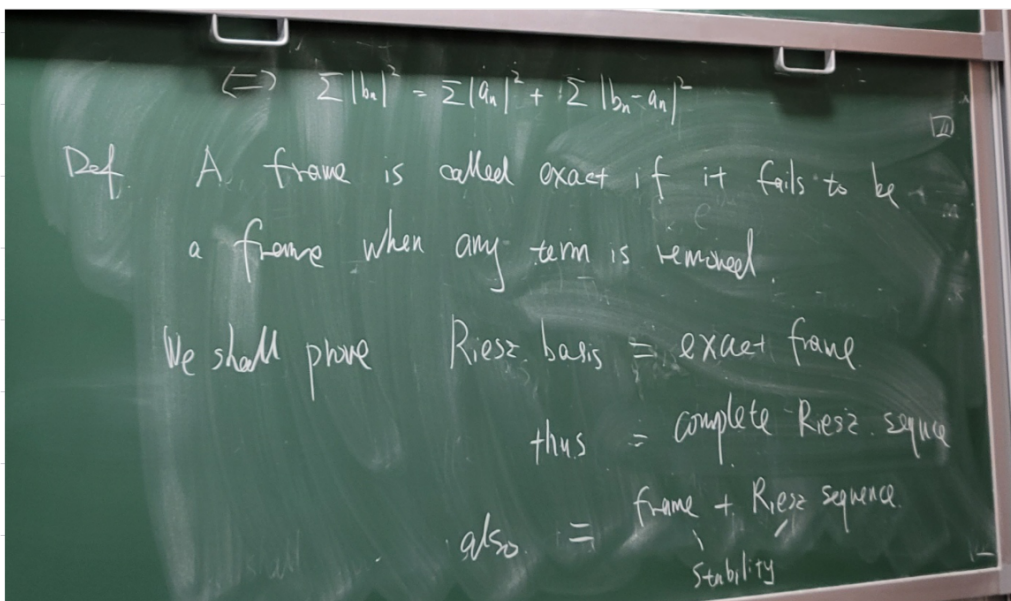 ⟺ Σ|bₙ|² = Σ|aₙ|² + Σ|bₙ-aₙ|²
Def. A frame is called exact if it fails to be
a frame when any term is removed.
We shall prove Riesz basis = exact frame.
thus = complete Riesz sequce
also = frame + Riesz sequence.
Stability